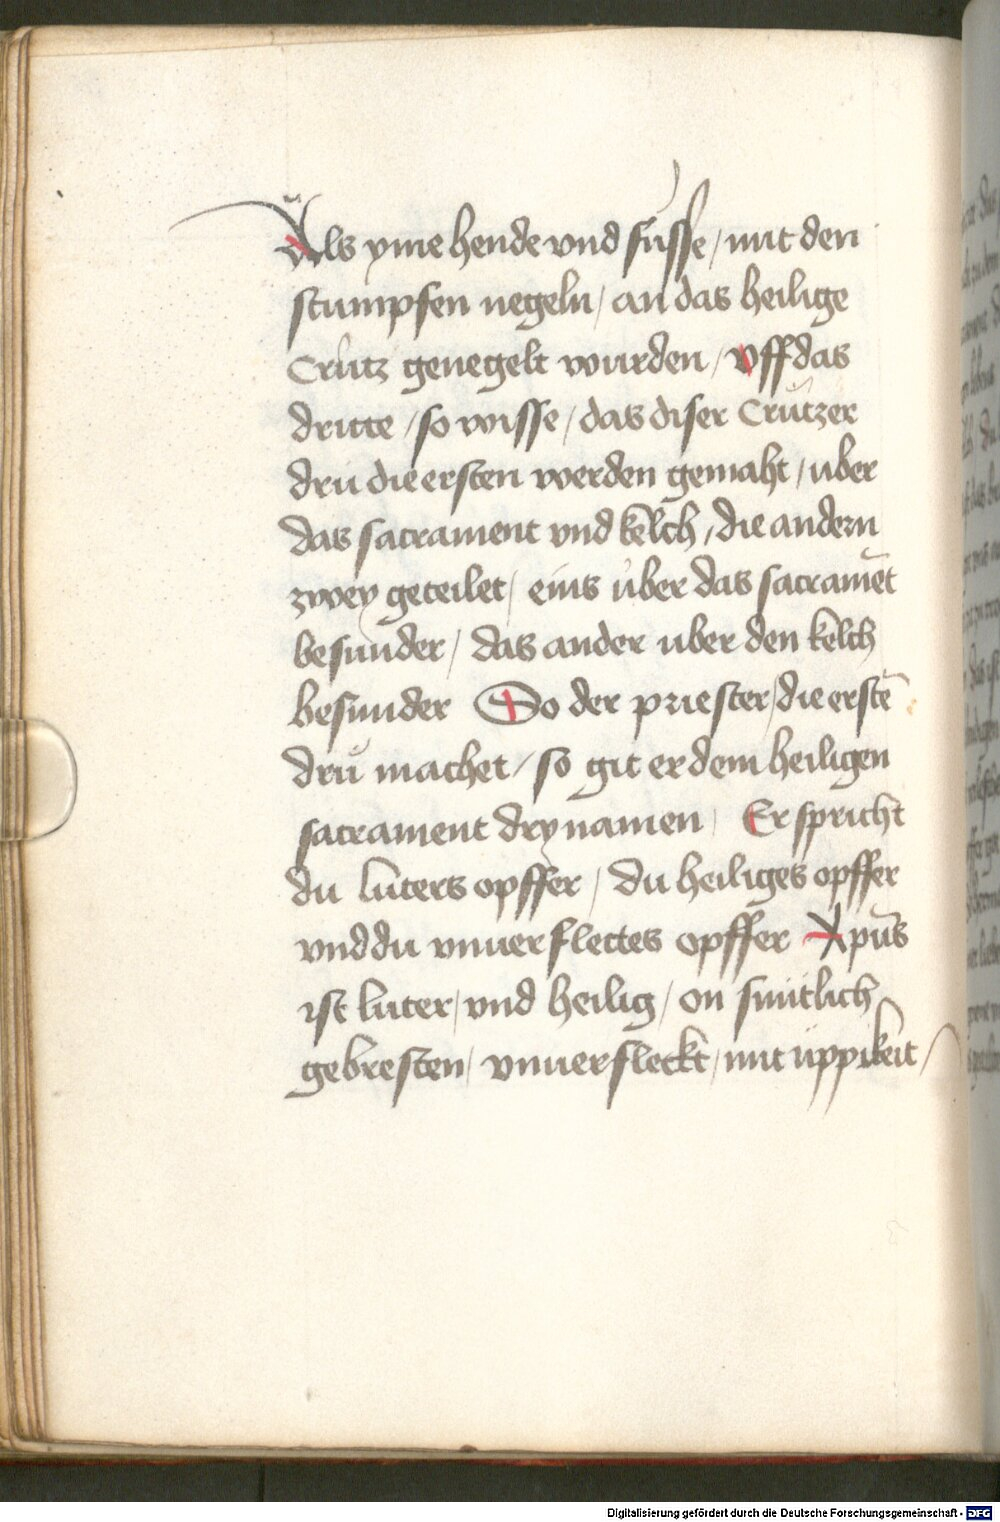 Als yme hende vnd füsse / mit den
stumpfen negeln / an das heilige
Crutz genegelt wurden / vff das
dritte / so wisse / das diser Crützer
dru die ersten werden gemaht / uber
das sacrament vnd kelch / die andern
zwey geteilet / eins über das sacramēt
besunder / das ander uber den kelch
besunder So der priester / die erstē
drü machet / so git er dem heiligen
sacrament dry namen / Er spricht
du luters opffer / du heiliges opffer
vnd du vnuerflectes opffer Xpūs
ist luter / vnd heilig / on süntlich
gebresten / vnuerfleckt / mit üppikeit /
Digitalisierung gefördert durch die Deutsche Forschungsgemeinschaft - DFG